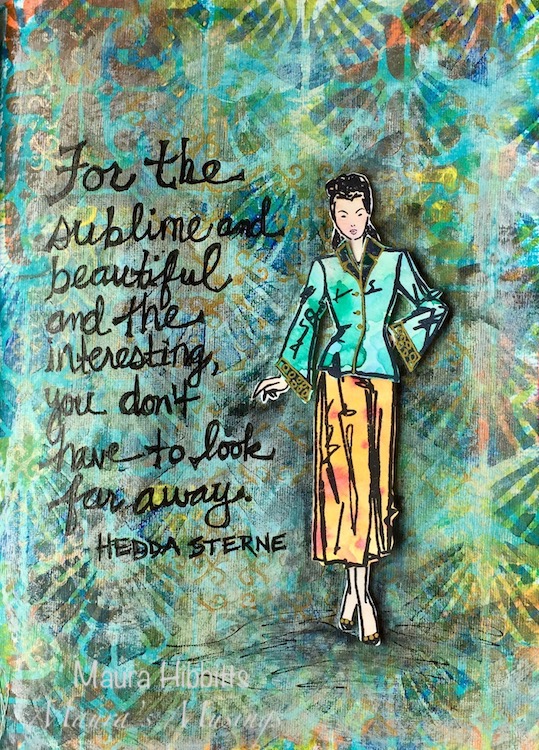 For the
sublime and
beautiful
and the
interesting,
you don't
have to look
far away.
- HEDDA STERNE
Maura Hibbitts
Maura's Musings